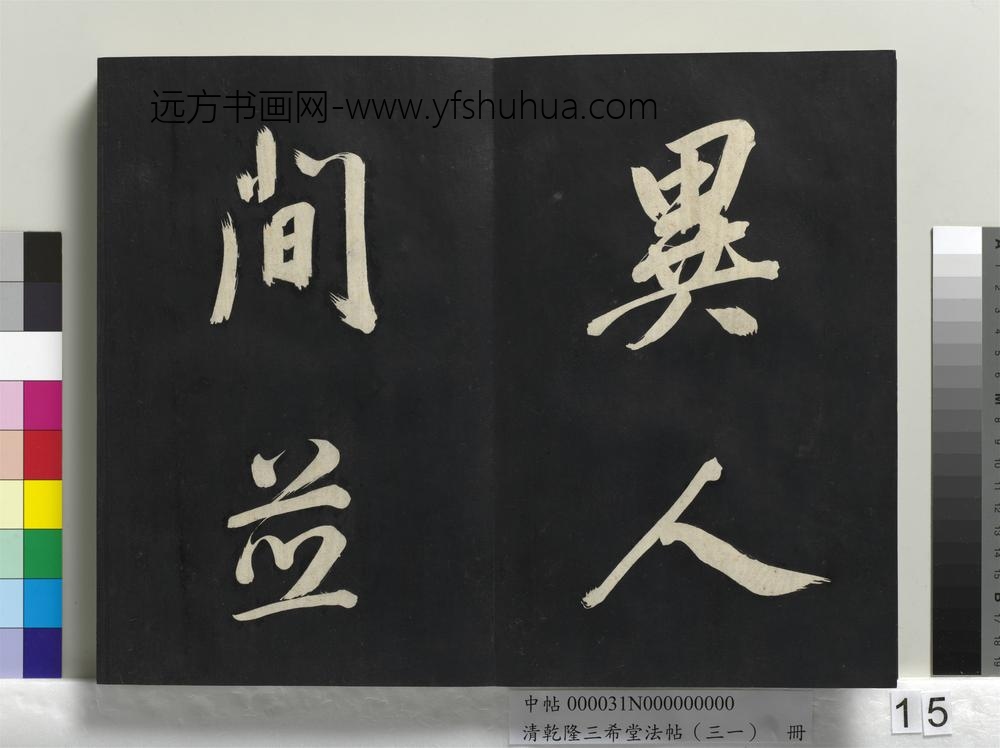 远方书画网-www.yfshuhua.com
異人
間並
中帖 000031N000000000
清乾隆三希堂法帖（三一） 冊
15